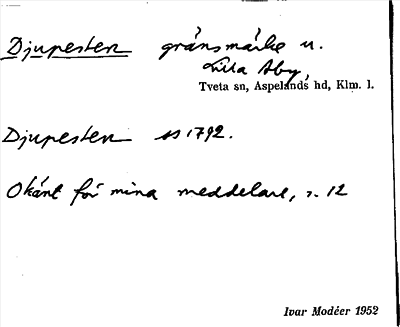 Djupesten gränsmärke u.
Lilla Aby,
Tveta sn, Aspelands hd, Klm. l.
Djupesten 1792.
Okänt för mina meddelare, s. 12
Ivar Modéer 1952